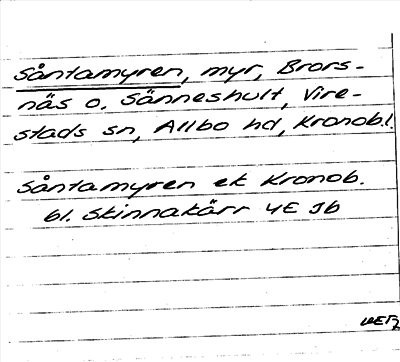 Såntamyren, myr, Brors-
näs o. Sänneshult, Vire-
stads sn, Allbo hd, Kronob.l.
Såntamyren ek Kronob.
bl. Skinnakärr 4E Jb